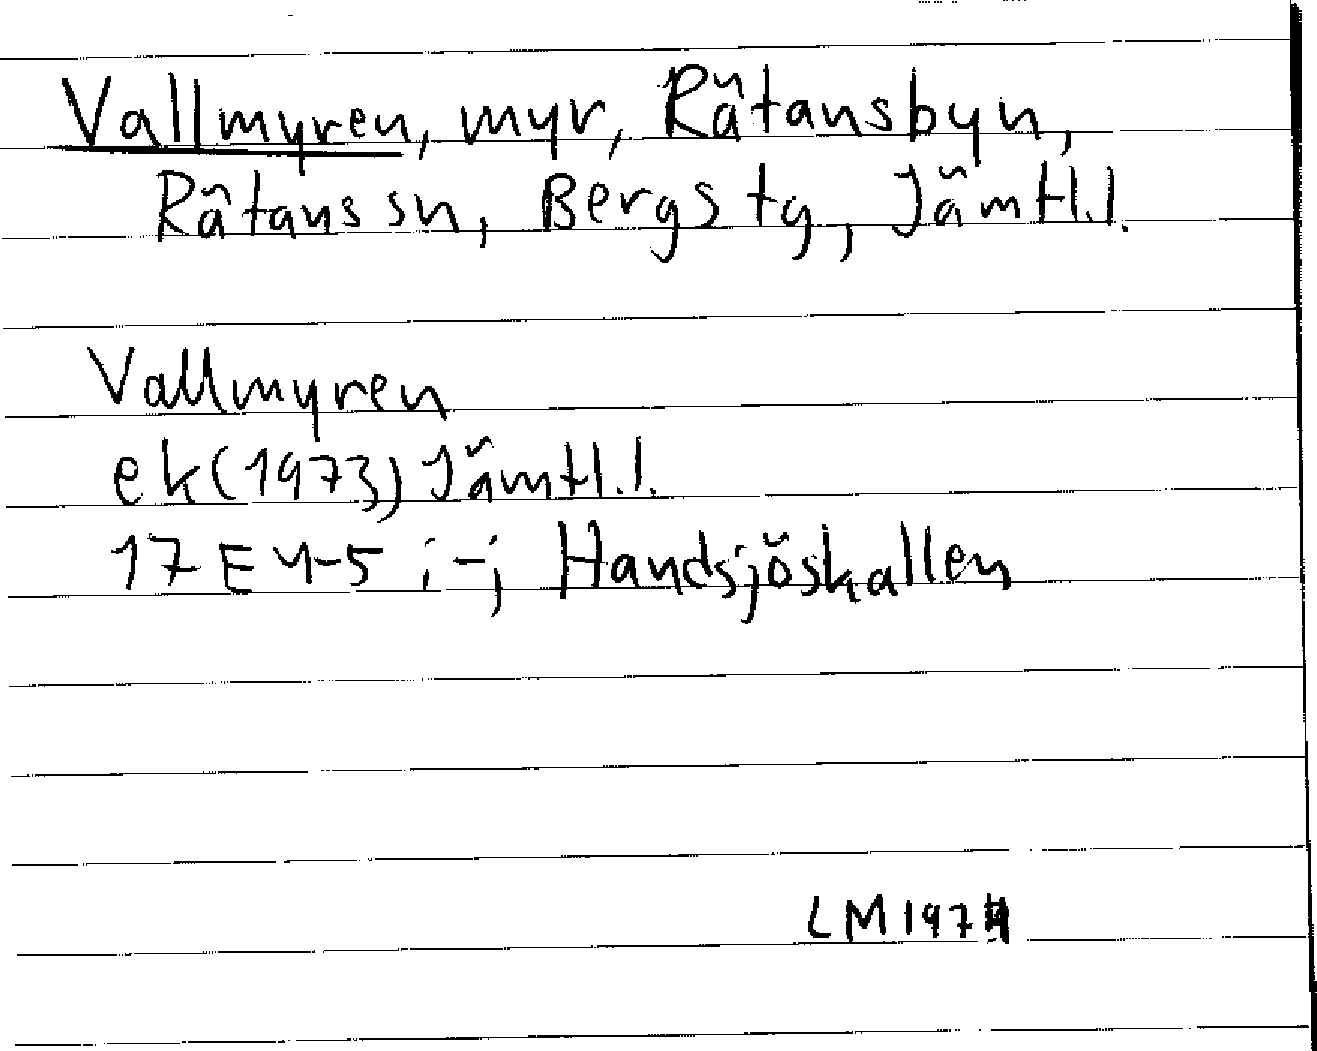 Vallmyren, myr, Rätansbyn,
Rätans sn, Bergs tg, Jämtl.l.
Vallmyren
ek(1973) Jämtl.l.
17E 4-5 i-j Handsjöskallen
LM 1974